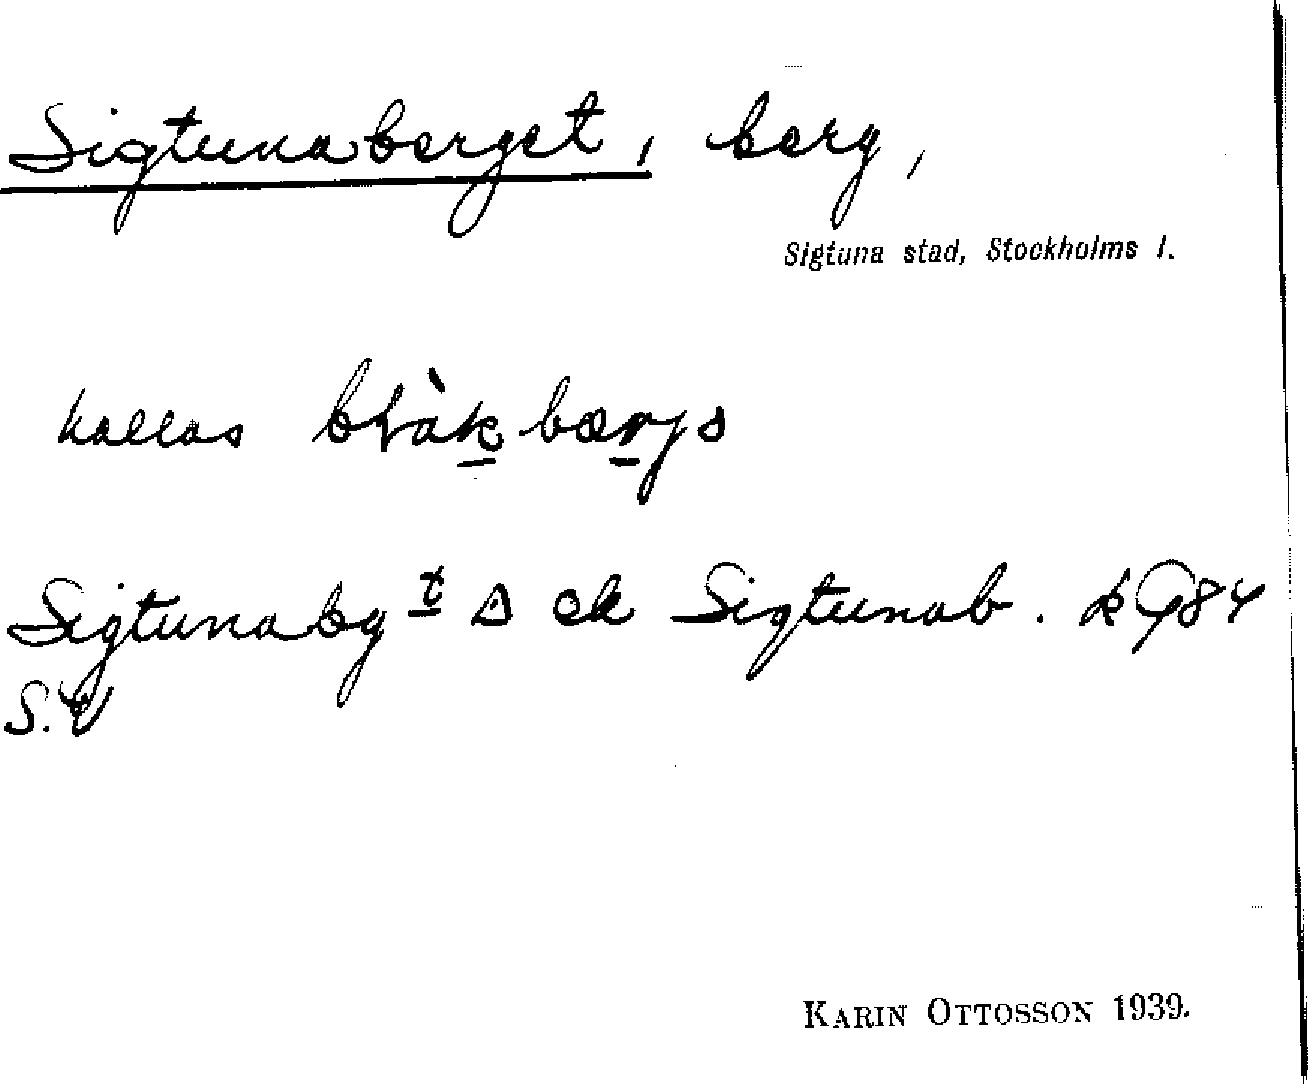 Sigtunaberget, berg,
Sigtuna stad, Stockholms l.
kallas bràkbærjs
Sigtunabg t ∆ ek Sigtunab. k 984
S.V
KARIN OTTOSSON 1939.